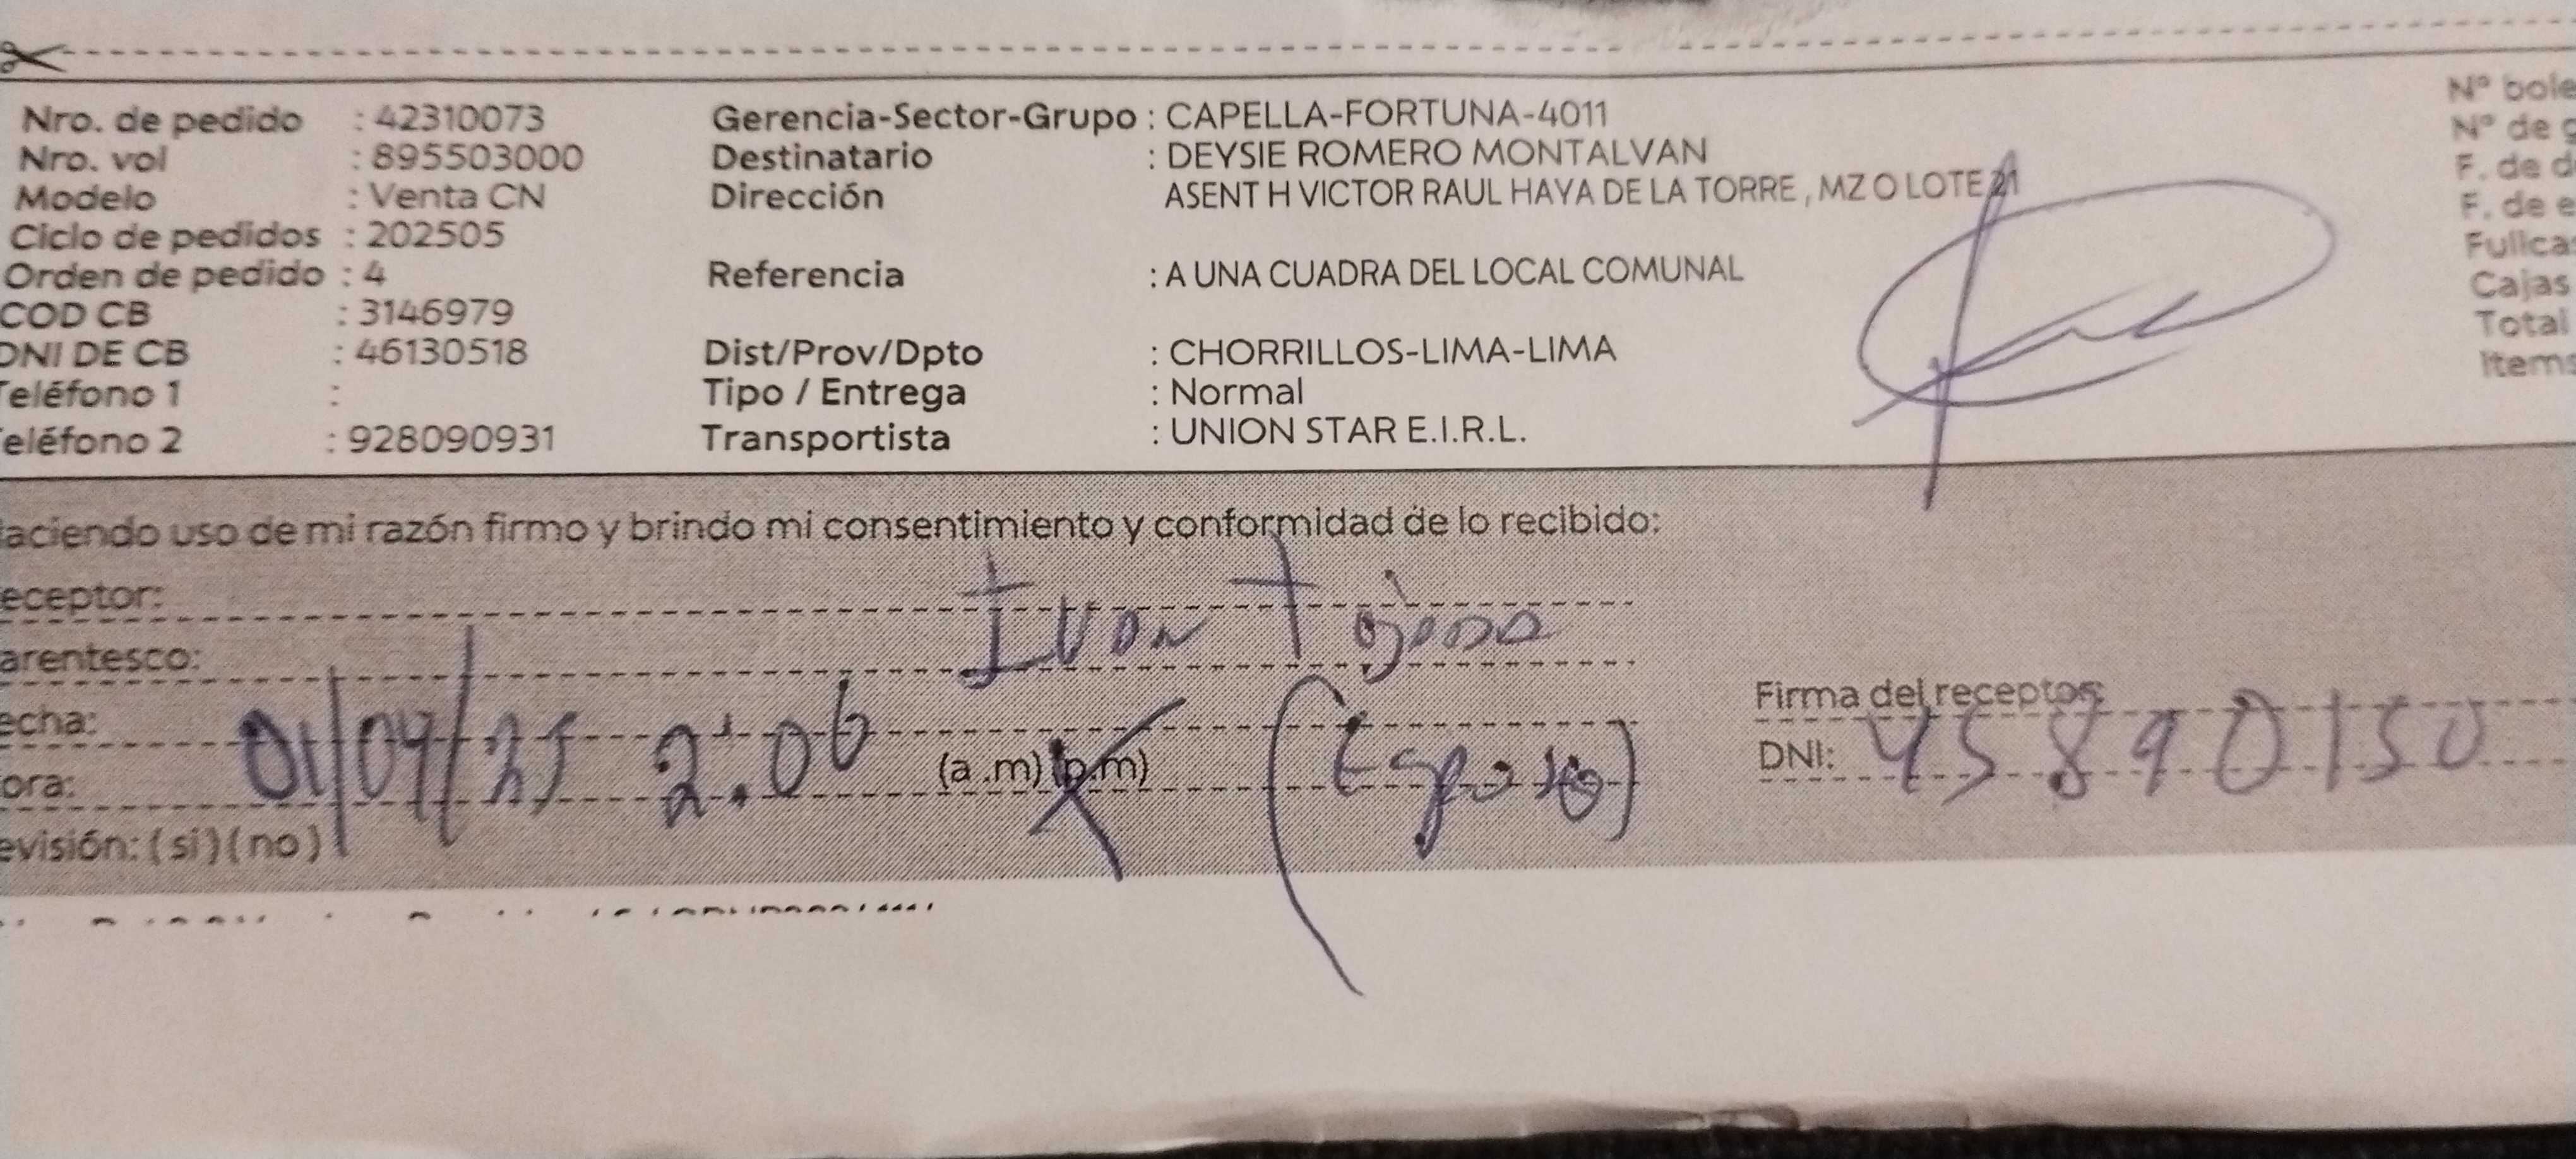 Nro. de pedido : 42310073 Gerencia-Sector-Grupo : CAPELLA-FORTUNA-4011 Nº bole
Nro. vol : 895503000 Destinatario : DEYSIE ROMERO MONTALVAN Nº de g
Modelo : Venta CN Dirección ASENT H VICTOR RAUL HAYA DE LA TORRE , MZ O LOTE 21 F. de d
Ciclo de pedidos : 202505 F. de e
Orden de pedido : 4 Referencia : A UNA CUADRA DEL LOCAL COMUNAL Fullca
COD CB : 3146979 Cajas
DNI DE CB : 46130518 Dist/Prov/Dpto : CHORRILLOS-LIMA-LIMA Total
Teléfono 1 : Tipo / Entrega : Normal Items
eléfono 2 : 928090931 Transportista : UNION STAR E.I.R.L.
aciendo uso de mi razón firmo y brindo mi consentimiento y conformidad de lo recibido:
eceptor: Ivon
arentesco:
echa: 01/04/25 2:06 (Esposo) Firma del receptor:
ora: (a .m) (p.m) DNI: 45890150
evisión: ( si ) ( no )